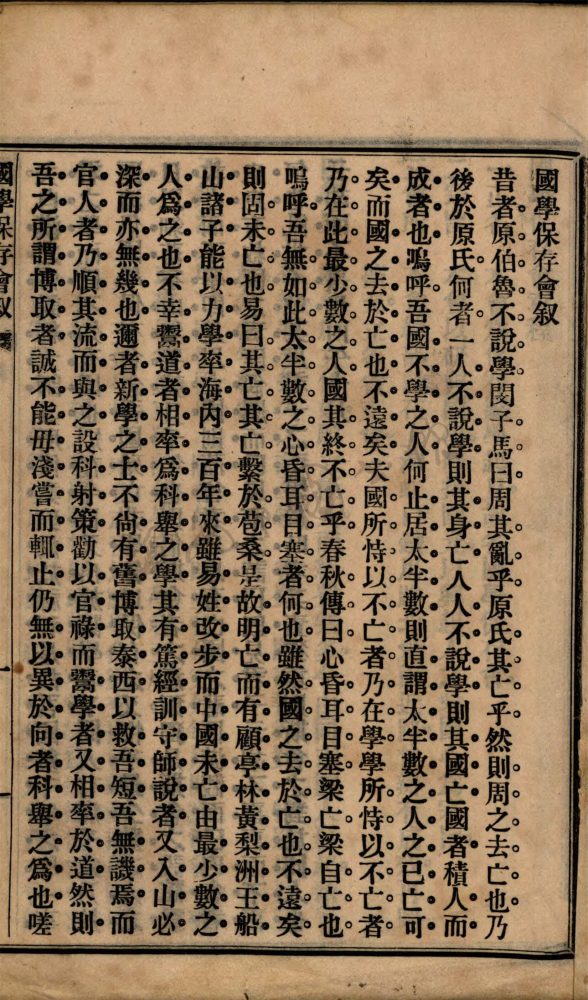 國學保存會叙
昔者原伯魯不說學閔子馬曰周其亂乎原氏其亡乎然則周之去亡也乃
後於原氏何者一人不說學則其身亡人人不說學則其國亡國者積人而
成者也嗚呼吾國不學之人何止居太半數則直謂太半數之人之已亡可
矣而國之去於亡也不遠矣夫國所恃以不亡者乃在學學所恃以不亡者
乃在此最少數之人國其終不亡乎春秋傳曰心昏耳目塞梁亡梁自亡也
嗚呼吾無如此太半數之心昏耳目塞者何也雖然國之去於亡也不遠矣
則固未亡也易曰其亡其亡繫於苞桑是故明亡而有顧亭林黃梨洲王船
山諸子能以力學率海內三百年來雖易姓改步而中國未亡由最少數之
人爲之也不幸鬻道者相率爲科舉之學其有篤經訓守師說者又入山必
深而亦無幾也邇者新學之士不尙有舊博取泰西以救吾短吾無譏焉而
官人者乃順其流而與之設科射策勸以官祿而鬻學者又相率於道然則
吾之所謂博取者誠不能毋淺嘗而輒止仍無以異於向者科舉之爲也嗟
國學保存會叙
一